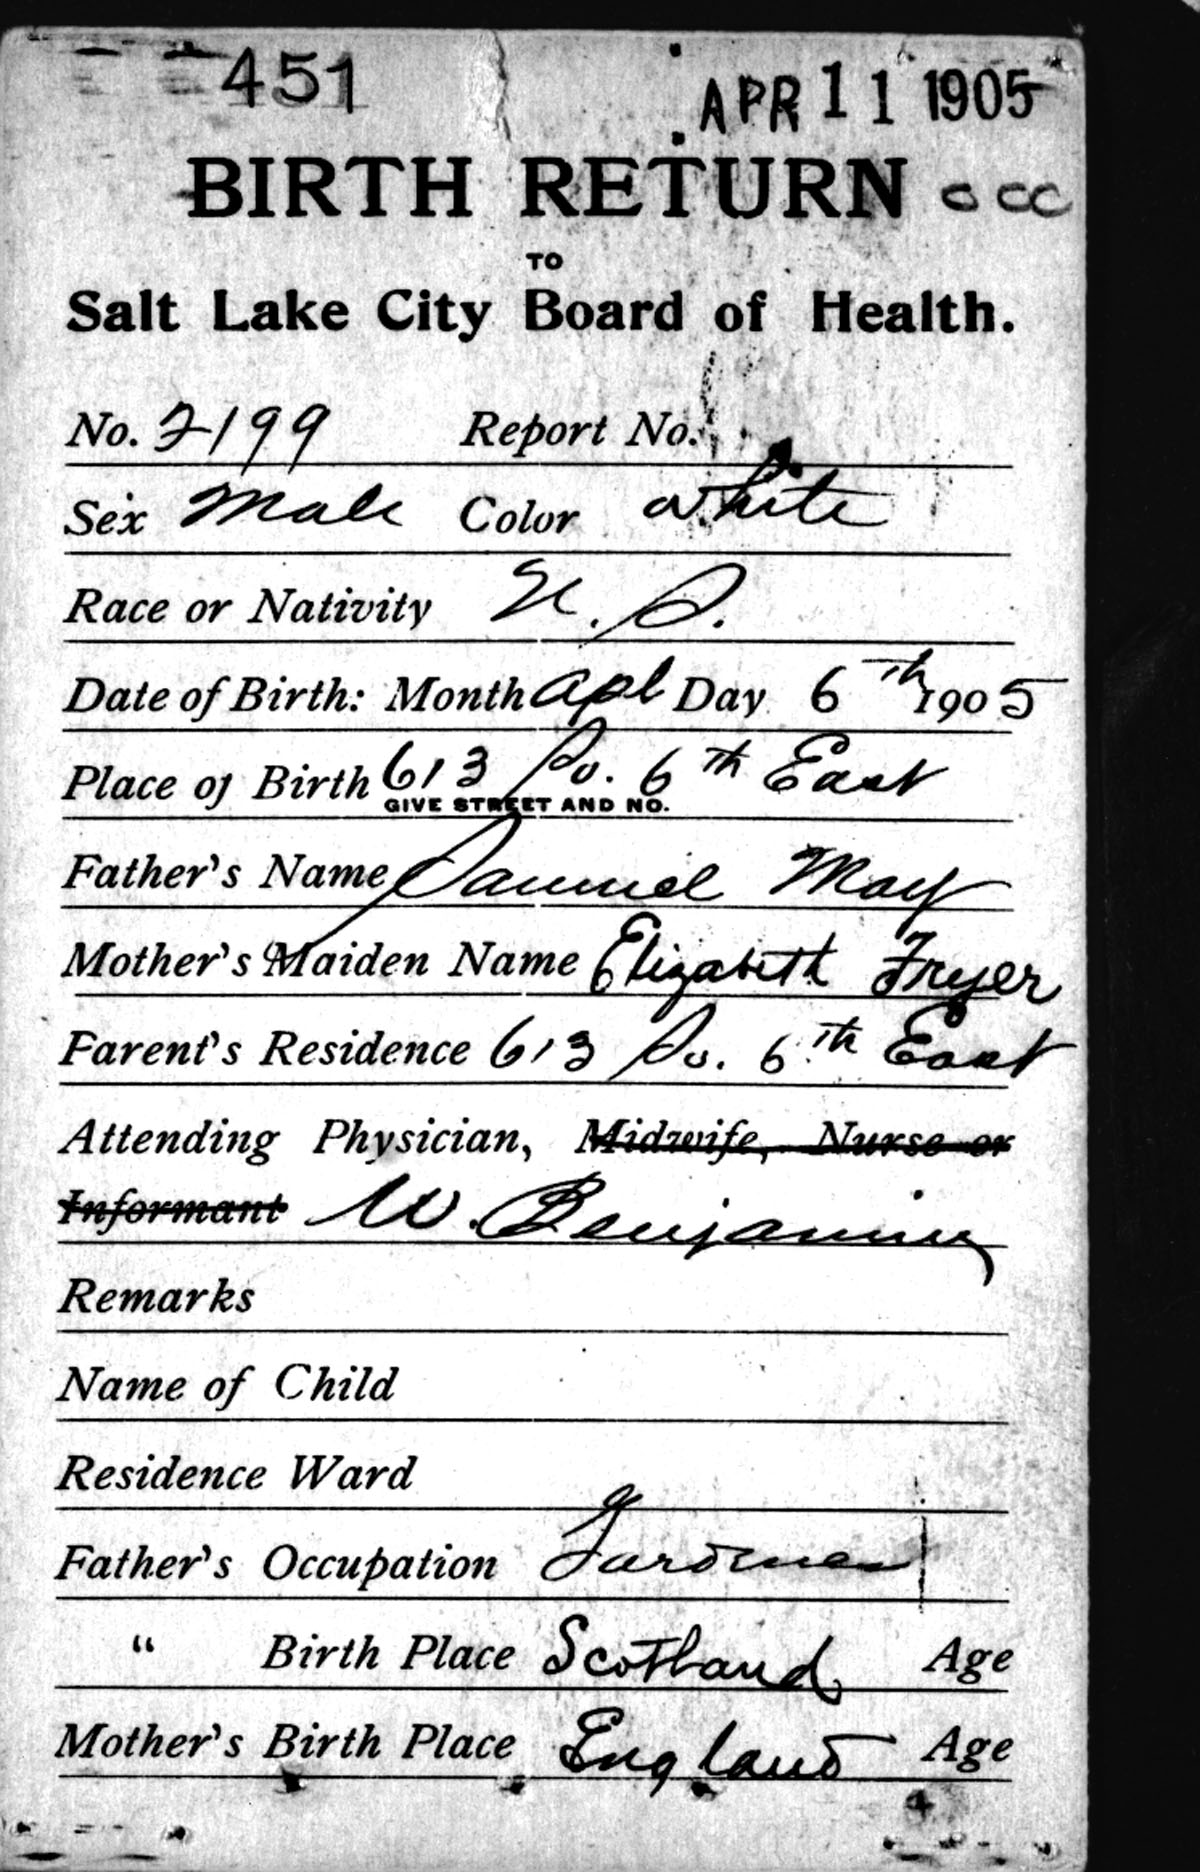 451 APR 11 1905
BIRTH RETURN
TO
Salt Lake City Board of Health.
No. 2199 Report No.
Sex Male Color White
Race or Nativity U. S.
Date of Birth: Month Apl Day 6th 1905
Place of Birth 613 So. 6th East
GIVE STREET AND NO.
Father's Name Samuel May
Mother's Maiden Name Elizabeth Fryer
Parent's Residence 613 So. 6th East
Attending Physician, Midwife, Nurse or
Informant W. Benjamin
Remarks
Name of Child
Residence Ward
Father's Occupation Gardner
" Birth Place Scotland Age
Mother's Birth Place England Age